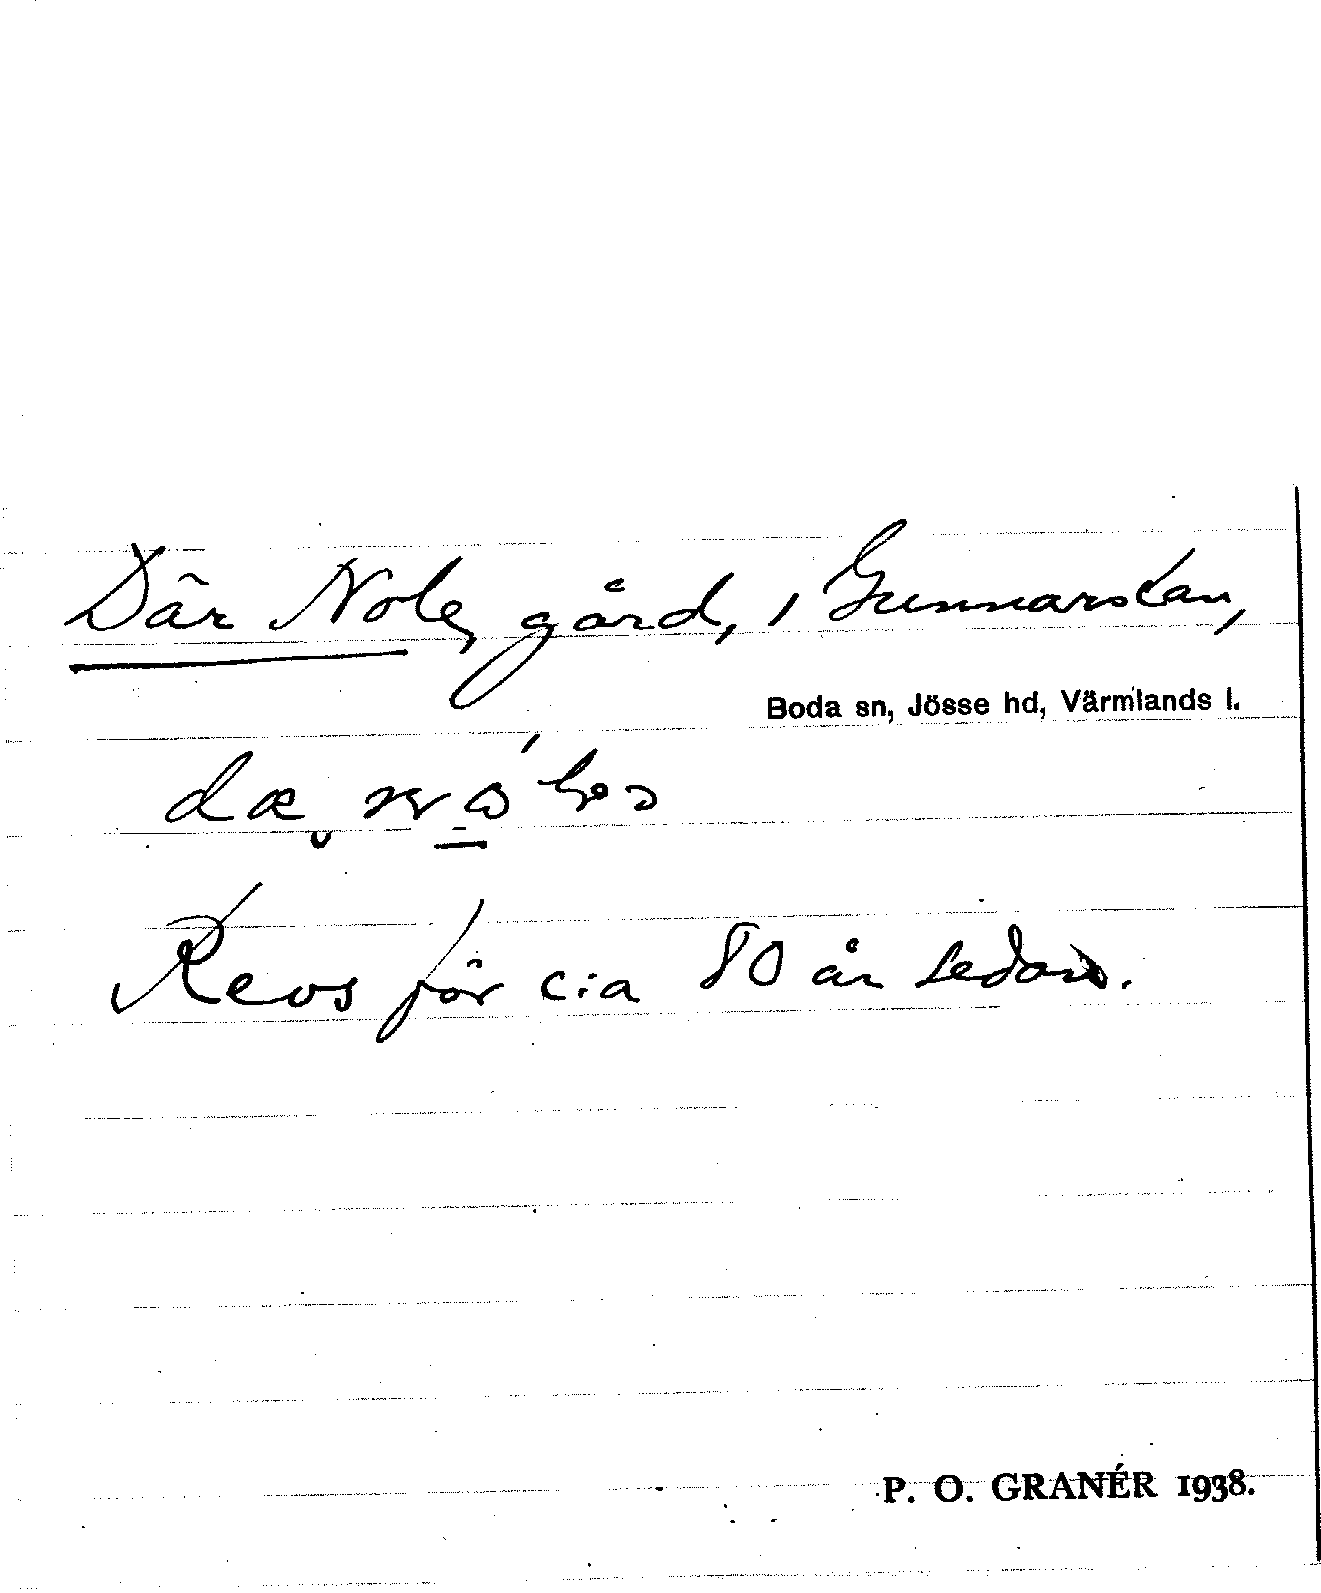 Där Nole, gård, i Gunnarskan,
Boda sn, Jösse hd, Värmlands l.
Revs för c:a 80 år sedan.
P. O. GRANÉR 1938.